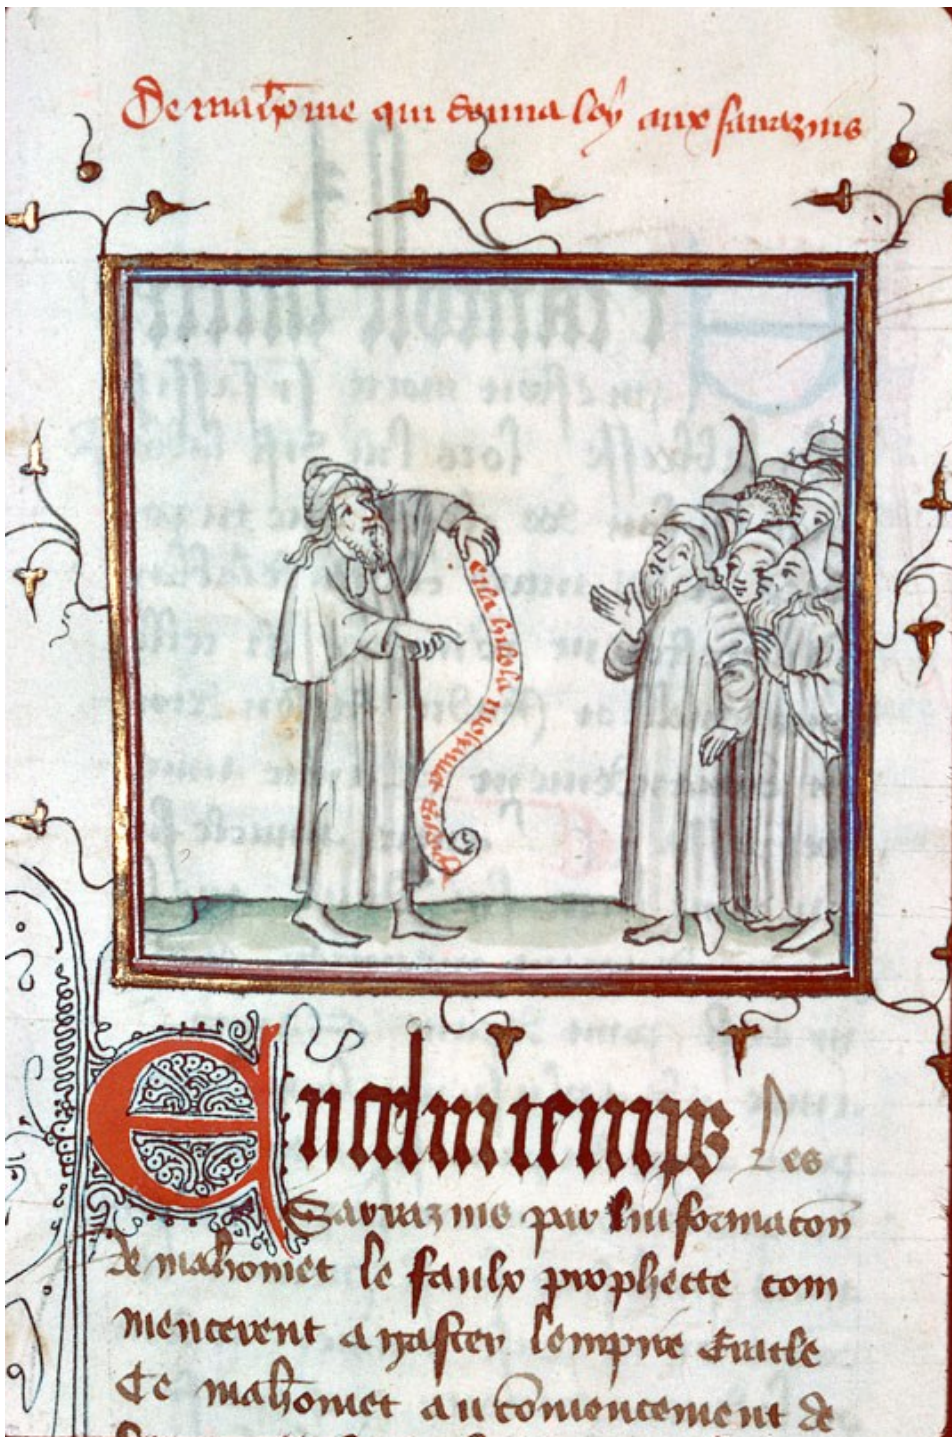 De mahome qui donna loy aux sarrazins
leila hillola mohamet
En celui temps Les
Sarrazins par linformacon
de mahomet le faulx prophecte com
mencerent a gaster lempire Eracle
Ce mahomet au comencement de